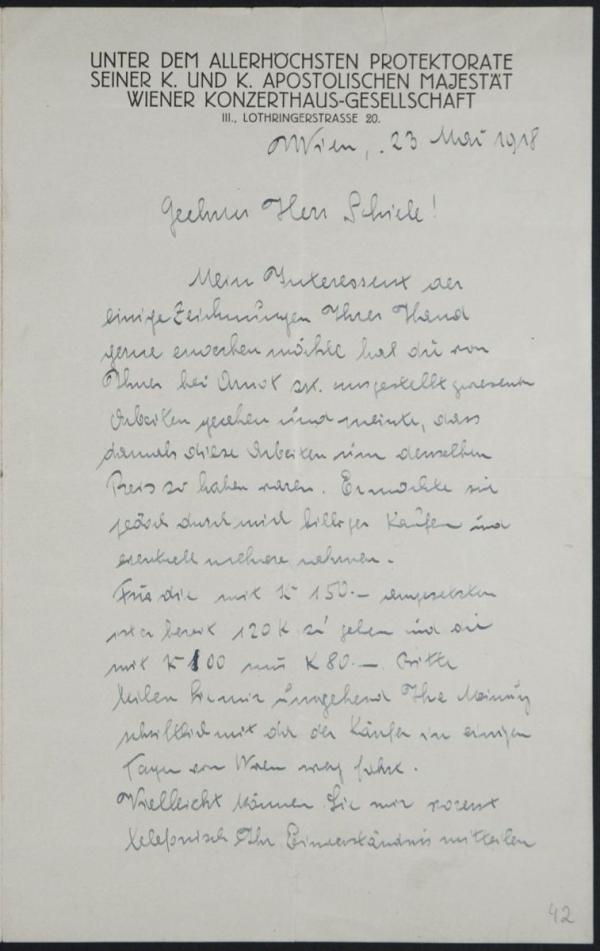 UNTER DEM ALLERHÖCHSTEN PROTEKTORATE
SEINER K. UND K. APOSTOLISCHEN MAJESTÄT
WIENER KONZERTHAUS-GESELLSCHAFT
III., LOTHRINGERSTRASSE 20.
Wien, 23 Mai 1918
Geehrter Herr Schiele!
Mein Interessent der
einige Zeichnungen Ihrer Hand
gerne erwerben möchte hat die von
Ihnen bei Arnot ausgestellt gewesenen
Arbeiten gesehen und meinte, dass
damals diese Arbeiten um denselben
Preis zu haben waren. Er möchte sie
jedoch durch mich billiger kaufen und
eventuell mehrere nehmen.
Für die mit K 150.– angesetzten
ist er bereit 120 K zu geben und die
mit K 100 nur K 80.– Bitte
teilen Sie mir umgehend Ihre Meinung
schriftlich mit da der Käufer in einigen
Tagen von Wien weg fährt.
Vielleicht können Sie mir
telefonisch Ihr Einverständnis mitteilen
42